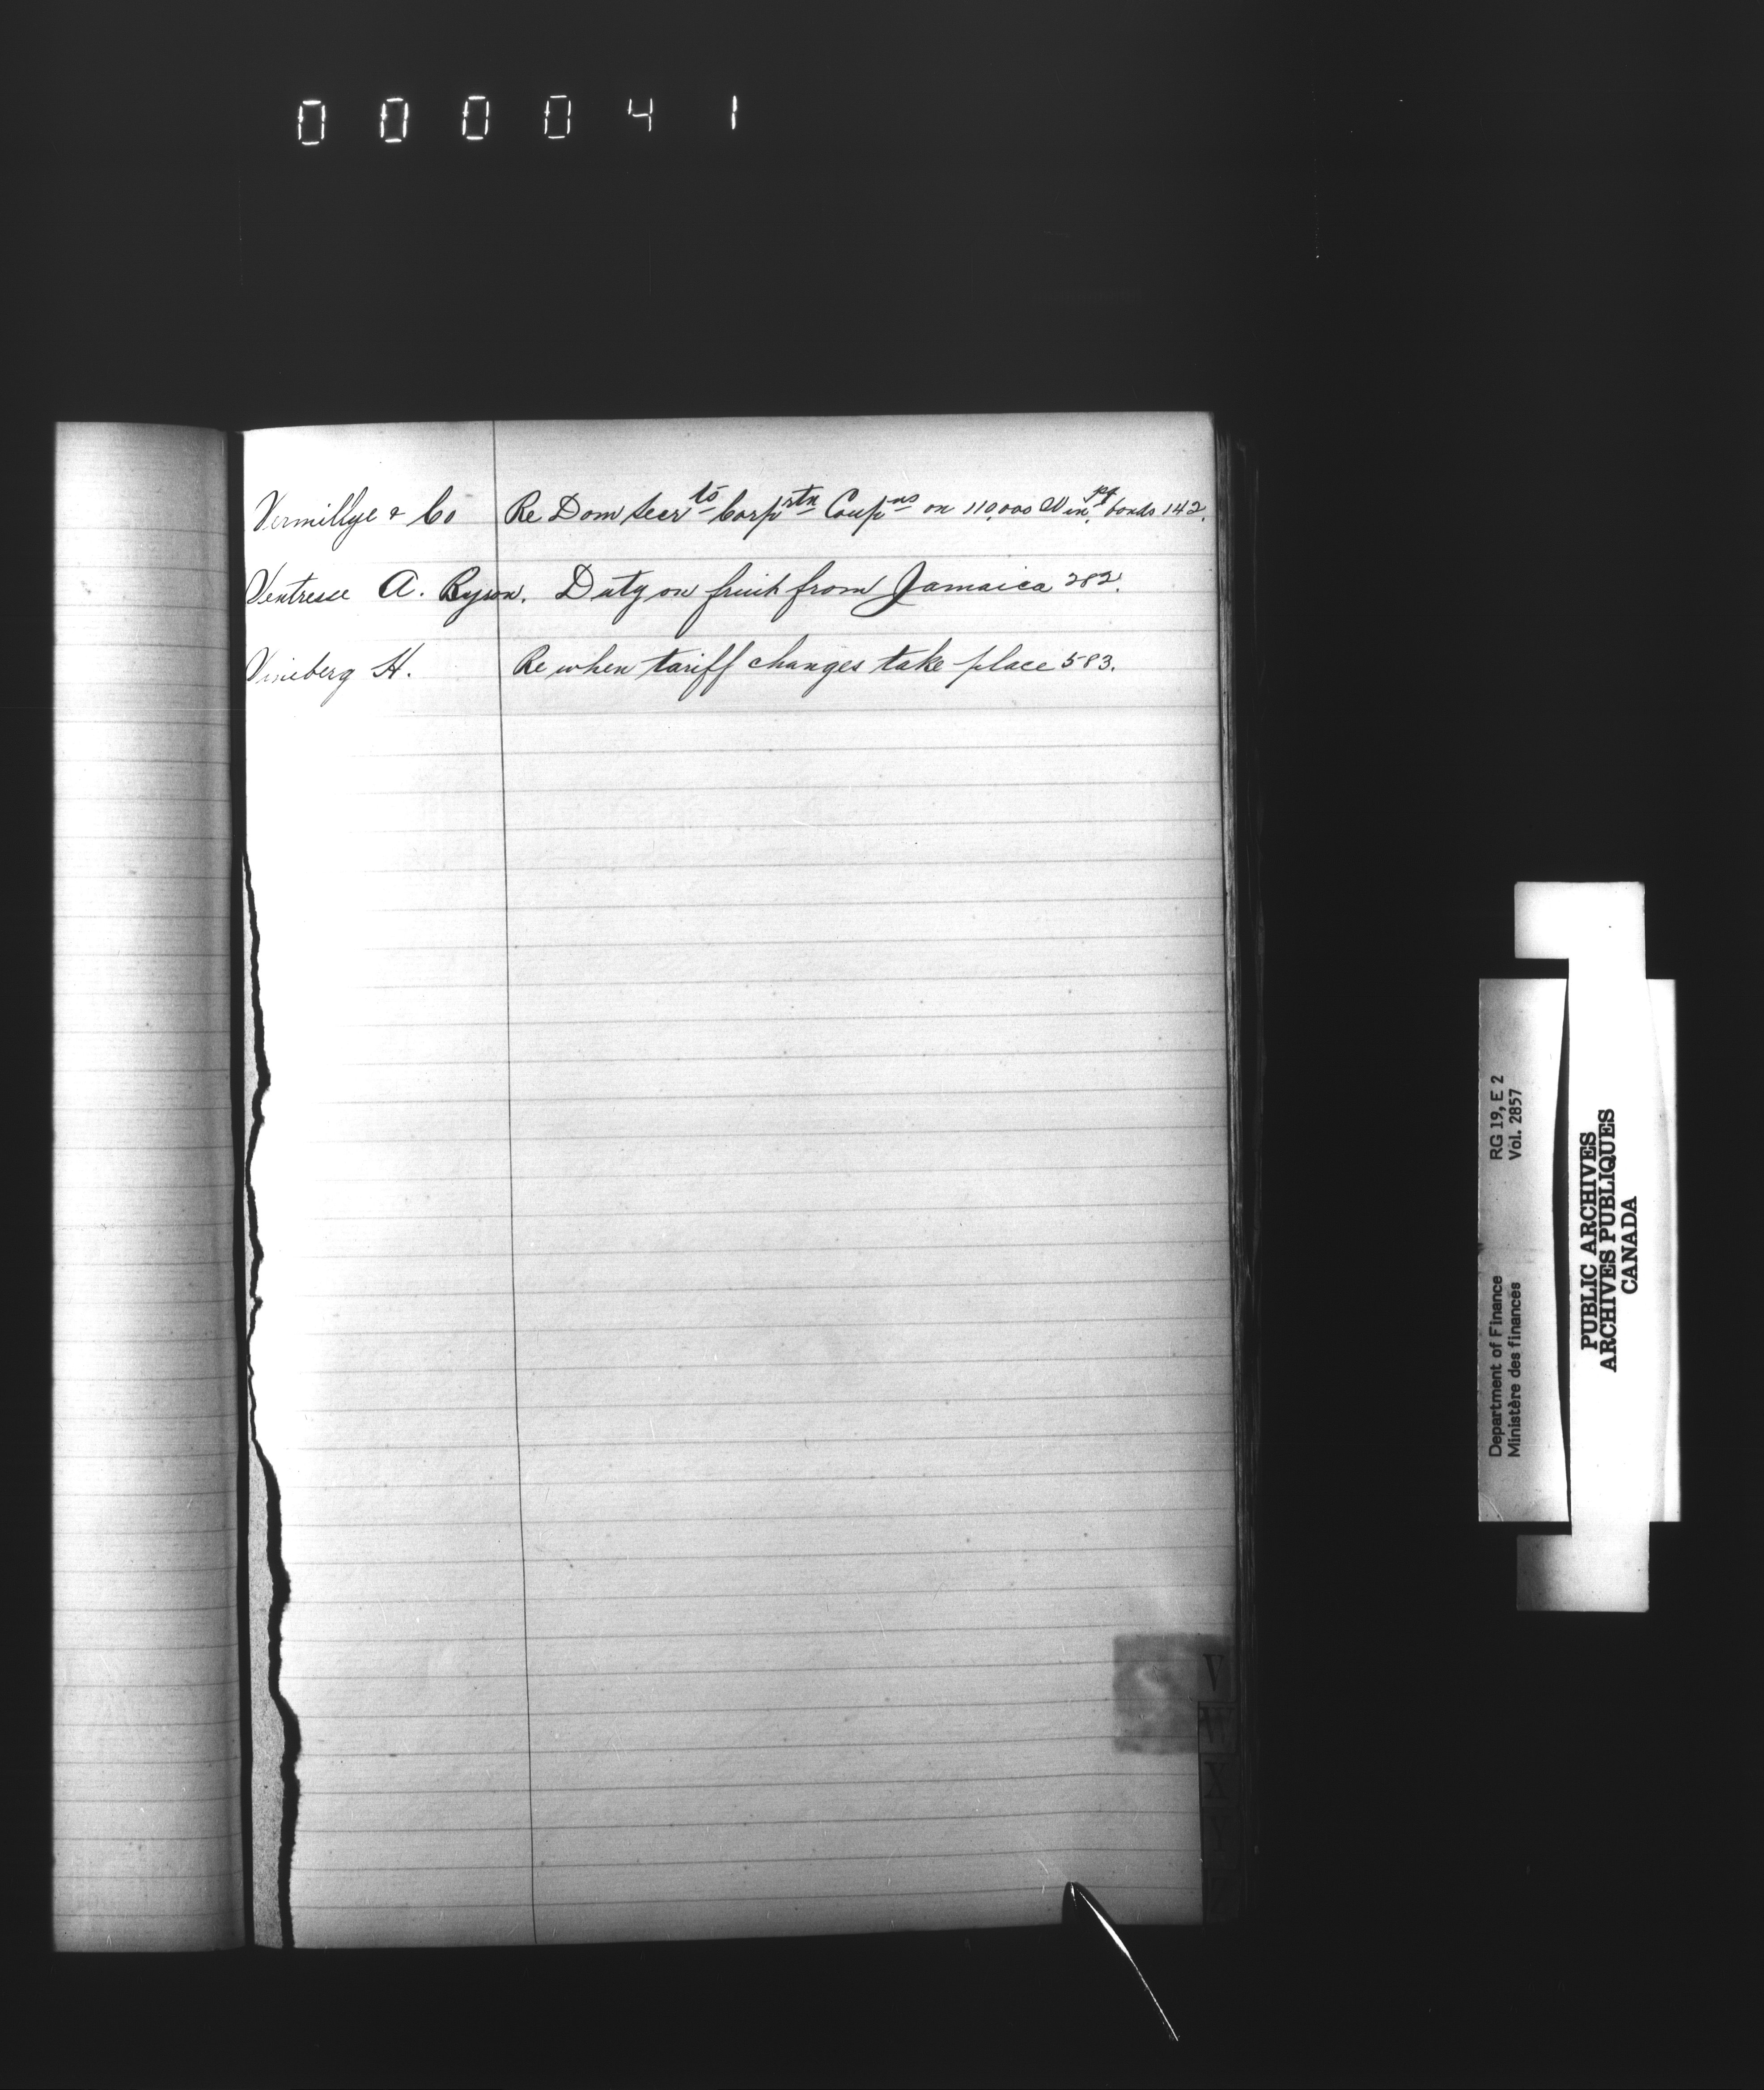 000041
Vermillye & Co Re Dom Secrts Corprtn Coupns on 110,000 Winpg bonds 142.
Ventresse A. Byson. Duty on fruit from Jamaica 282.
Vineberg H. Re when tariff changes take place 583.
V
W
X
Y
Z
Department of Finance RG 19, E 2
Ministère des finances Vol. 2857
PUBLIC ARCHIVES
ARCHIVES PUBLIQUES
CANADA